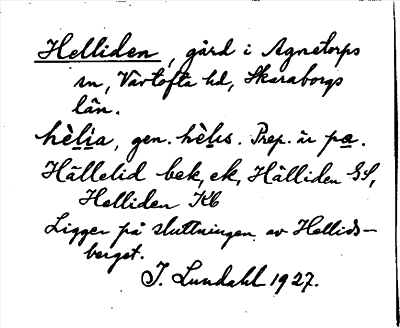 Helliden, gård i Agnetorps
sn, Vartofta hd, Skaraborgs
län.
hèlia, gen. hèlis. Prep. är pa.
Hällelid bek, ek, Hälliden GS,
Helliden Kb
Ligger på sluttningen av Hellids-
berget.
I. Lundahl 1927.